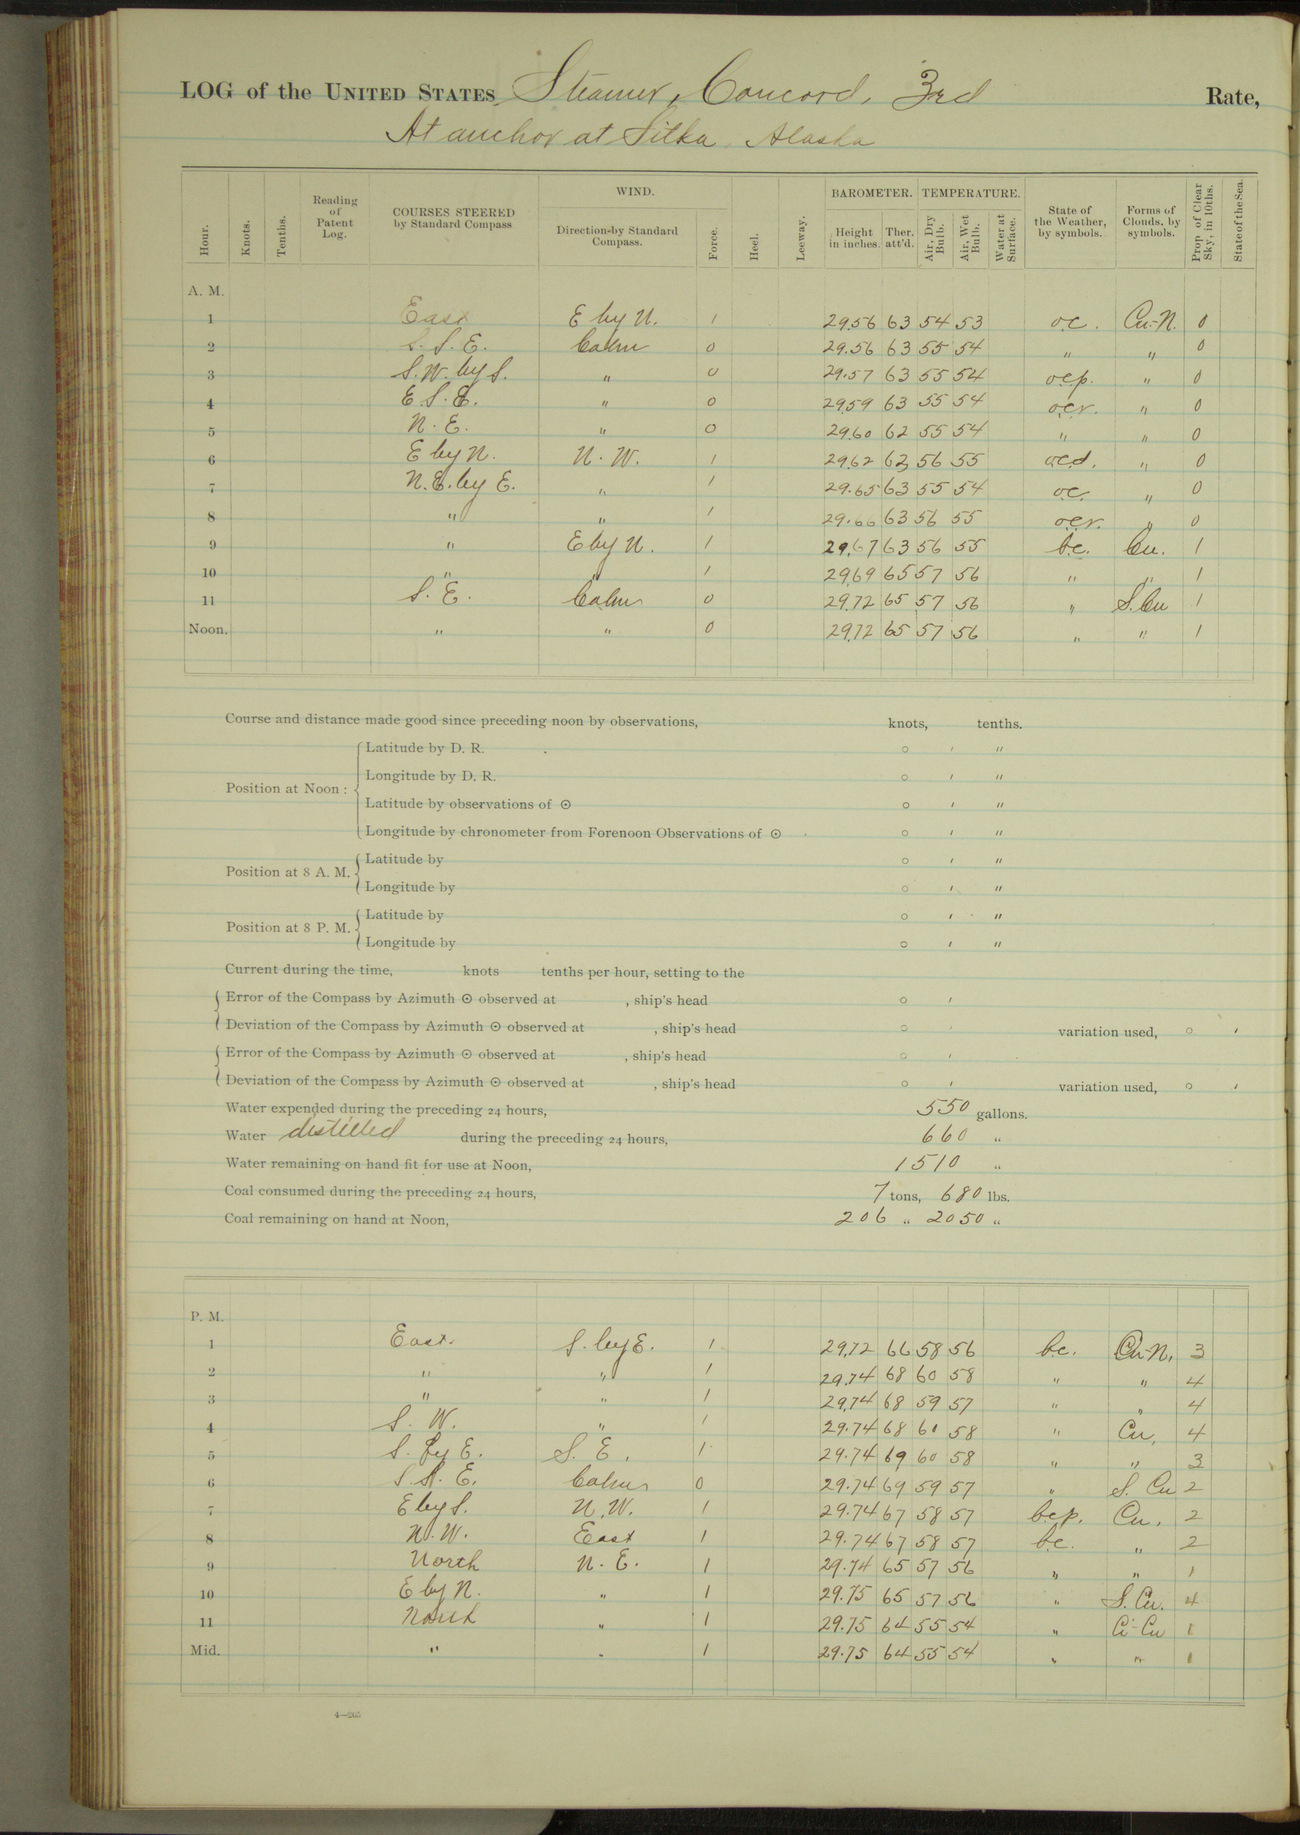 LOG of the UNITED STATES Steamer, Concord, 3rd Rate,
At anchor at Sitka, Alaska
Hour. Knots. Tenths. Reading of Patent Log. COURSES STEERED by Standard Compass WIND. Direction by Standard Compass. Force. Heel. Leeway. BAROMETER. Height in inches. Ther. att'd. TEMPERATURE. Air, Dry Bulb. Air, Wet Bulb. Water at Surface. State of the Weather, by symbols. Forms of Clouds, by symbols. Prop. of Clear Sky, in 10ths. State of the Sea.
A. M.
1 East E by N. 1 29.56 63 54 53 o.c. Cu.-N. 0
2 S. S. E. Calm 0 29.56 63 55 54 " " 0
3 S.W. by S. " 0 29.57 63 55 54 o.c.p. " 0
4 E S. E. " 0 29.59 63 55 54 o.c.r. " 0
5 N. E. " 0 29.60 62 55 54 " " 0
6 E by N. N. W. 1 29.62 63 56 55 o.c.d. " 0
7 N.E. by E. " 1 29.65 63 55 54 o.c. " 0
8 " " 1 29.66 63 56 55 o.c.r. " 0
9 " E by N. 1 29.67 63 56 55 b.c. Cu. 1
10 " " 1 29.69 65 57 56 " " 1
11 S. E. Calm 0 29.72 65 57 56 " S. Cu 1
Noon. " " 0 29.72 65 57 56 " " 1
Course and distance made good since preceding noon by observations, knots, tenths.
Position at Noon :
Latitude by D. R. ° ′ ″
Longitude by D. R. ° ′ ″
Latitude by observations of ⊙ ° ′ ″
Longitude by chronometer from Forenoon Observations of ⊙ ° ′ ″
Position at 8 A. M.
Latitude by ° ′ ″
Longitude by ° ′ ″
Position at 8 P. M.
Latitude by ° ′ ″
Longitude by ° ′ ″
Current during the time, knots tenths per hour, setting to the
Error of the Compass by Azimuth ⊙ observed at , ship's head ° ′
Deviation of the Compass by Azimuth ⊙ observed at , ship's head ° ′ variation used, ° ′
Error of the Compass by Azimuth ⊙ observed at , ship's head ° ′
Deviation of the Compass by Azimuth ⊙ observed at , ship's head ° ′ variation used, ° ′
Water expended during the preceding 24 hours, 550 gallons.
Water distilled during the preceding 24 hours, 660 "
Water remaining on hand fit for use at Noon, 1510 "
Coal consumed during the preceding 24 hours, 7 tons, 680 lbs.
Coal remaining on hand at Noon, 206 " 2050 "
P. M.
1 East. S. by E. 1 29.72 66 58 56 b.c. Cu-N. 3
2 " " 1 29.74 68 60 58 " " 4
3 " " 1 29.74 68 59 57 " " 4
4 S. W. " 1 29.74 68 61 58 " Cu, 4
5 S. by E. S. E. 1 29.74 69 60 58 " " 3
6 S. S. E. Calm 0 29.74 69 59 57 " S. Cu 2
7 E by S. N. W. 1 29.74 67 58 57 b.c.p. Cu. 2
8 N. W. East 1 29.74 67 58 57 b.c. " 2
9 North N. E. 1 29.74 65 57 56 " " 1
10 E by N. " 1 29.75 65 57 56 " S. Cu. 4
11 North " 1 29.75 64 55 54 " Ci-Cu 1
Mid. " " 1 29.75 64 55 54 " " 1
4—265